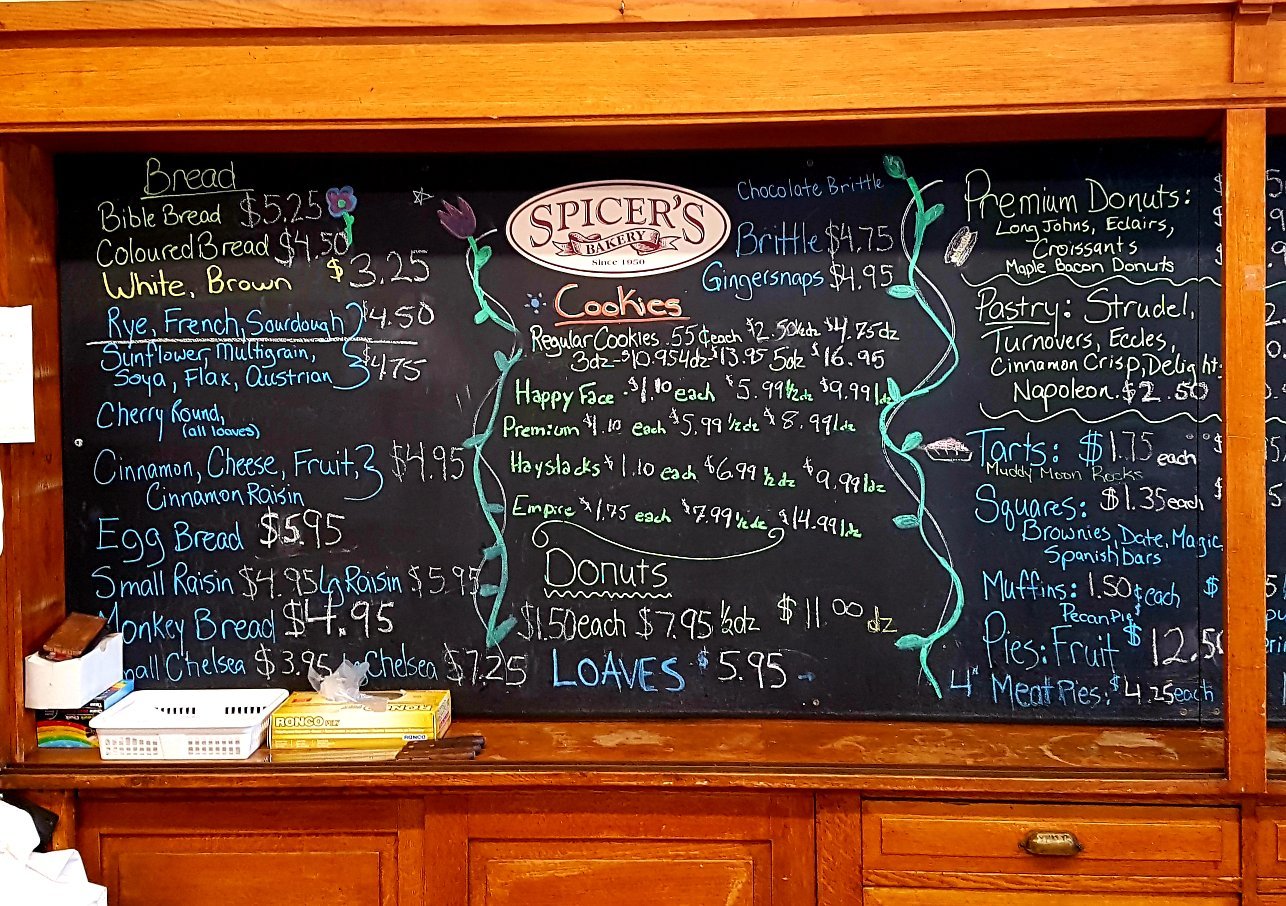 Bread
Bible Bread $5.25
Coloured Bread $4.50
White, Brown $3.25
Rye, French, Sourdough } $4.50
Sunflower, Multigrain,
Soya, Flax, Austrian } $4.75
Cherry Round,
(all loaves)
Cinnamon, Cheese, Fruit, } $4.95
Cinnamon Raisin
Egg Bread $5.95
Small Raisin $4.95 Lg Raisin $5.95
Monkey Bread $4.95
Small Chelsea $3.95 Lg Chelsea $7.25
SPICER'S
BAKERY
Since 1950
Chocolate Brittle
Brittle $4.75
Gingersnaps $4.95
Cookies
Regular Cookies .55¢ each $2.50 ½dz $4.75 dz
3dz-$10.95 4dz $13.95 5dz $16.95
Happy Face -$1.10 each $5.99 ½dz $9.99 1dz
Premium $1.10 each $5.99 ½dz $8.99 1dz
Haystacks $1.10 each $6.99 ½dz $9.99 1dz
Empire $1.75 each $7.99 ½dz $14.99 1dz
Donuts
$1.50 each $7.95 ½dz $11.00 dz
LOAVES $5.95
Premium Donuts:
Long Johns, Eclairs,
Croissants
Maple Bacon Donuts
Pastry: Strudel,
Turnovers, Eccles,
Cinnamon Crisp, Delight,
Napoleon. $2.50
Tarts: $1.75 each
Muddy Moon Rocks
Squares: $1.35 each
Brownies, Date, Magic,
Spanish bars
Muffins: 1.50¢ each
Pecan Pie $
Pies: Fruit $12.50
4" Meat Pies: $4.25 each
RONCO
RONCO